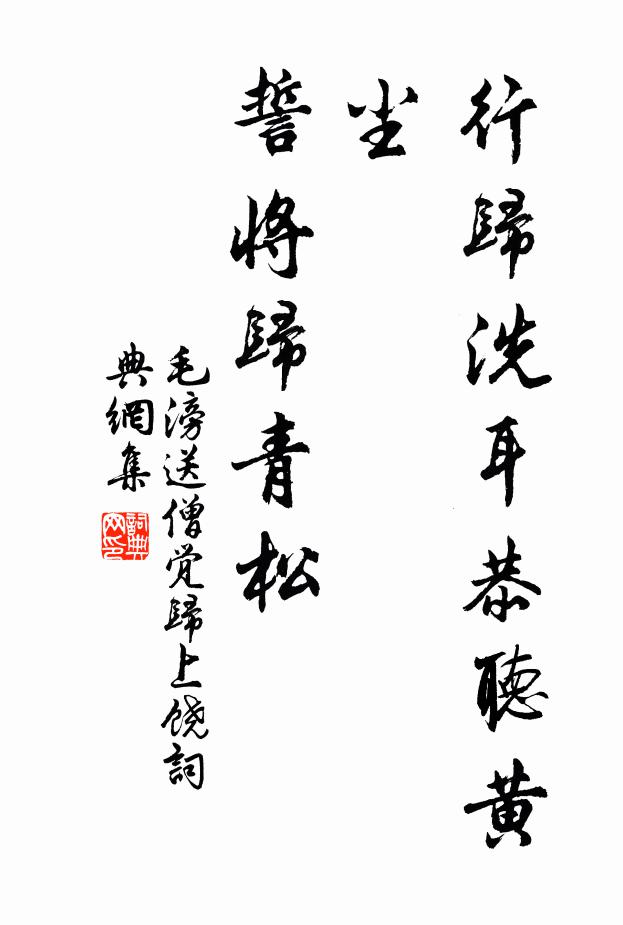 行歸洗耳恭聽黃
尘
誓將歸青松
毛滂送僧覚歸上饶詞
典網集
詞典
网印